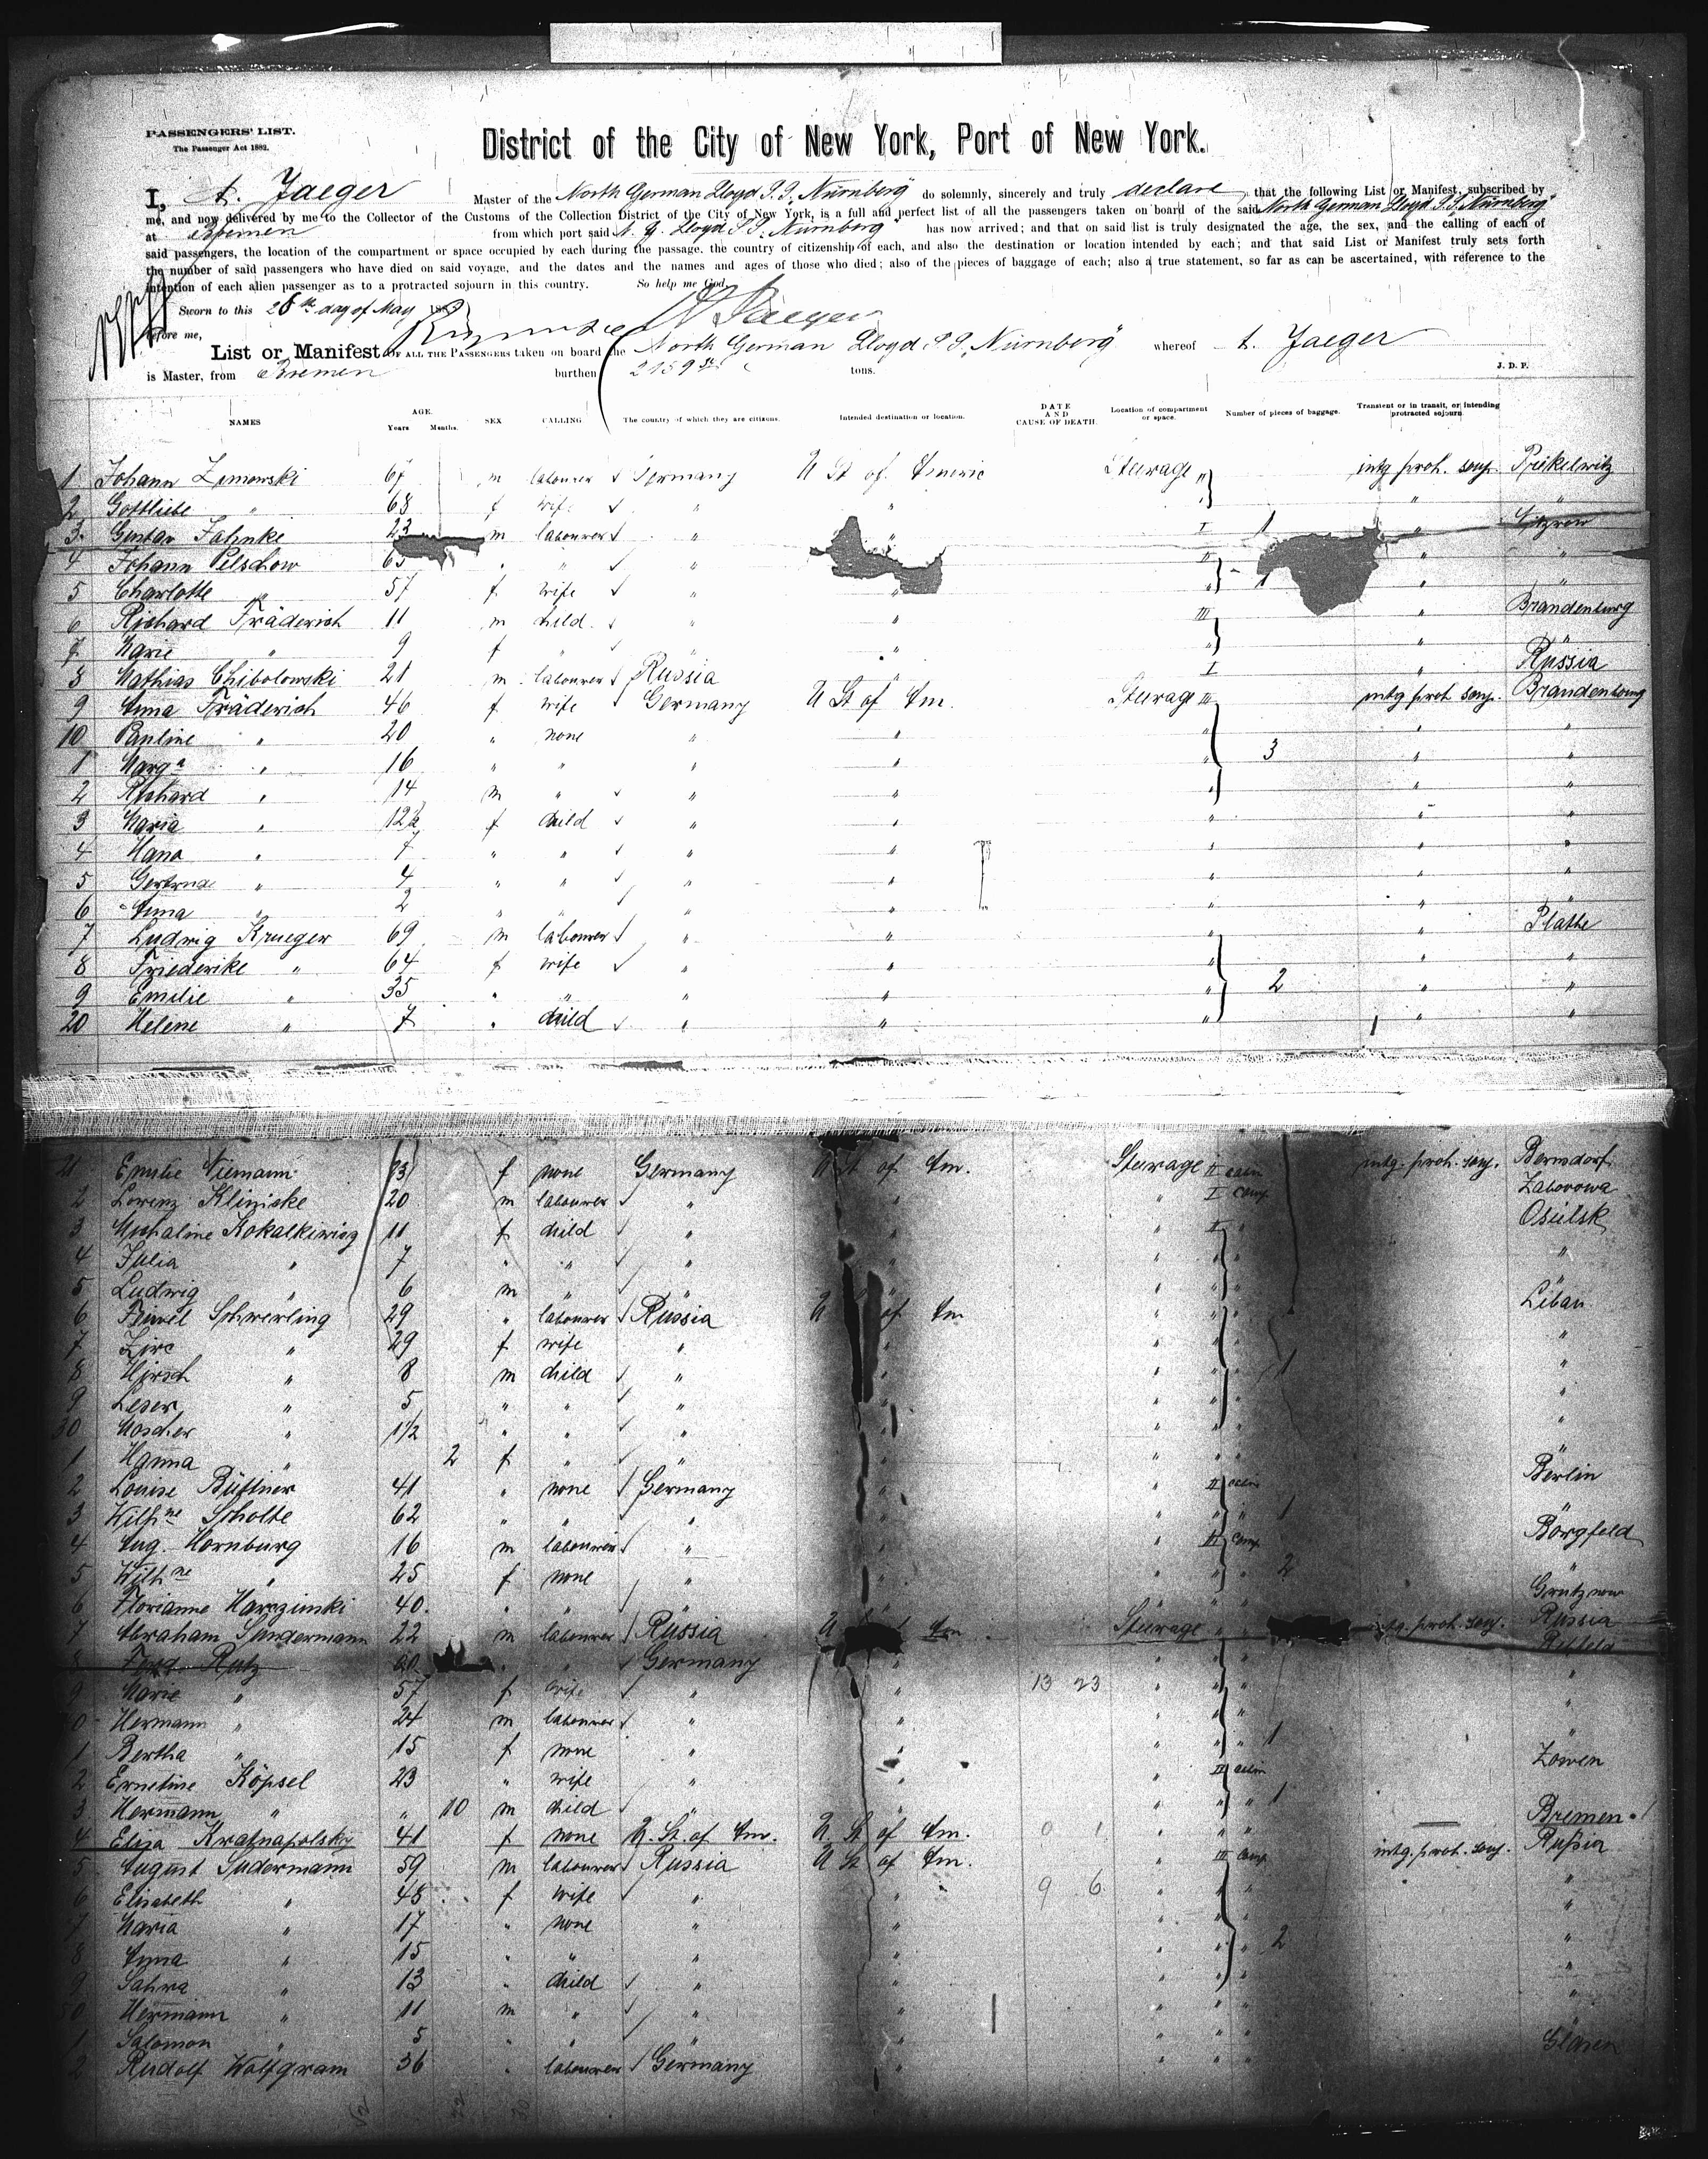 PASSENGERS' LIST.
The Passenger Act 1882.
District of the City of New York, Port of New York.
I, A. Jaeger Master of the North German Lloyd S.S. "Nürnberg" do solemnly, sincerely and truly declare that the following List or Manifest, subscribed by
me, and now delivered by me to the Collector of the Customs of the Collection District of the City of New York, is a full and perfect list of all the passengers taken on board of the said North German Lloyd S.S. "Nürnberg"
at Bremen from which port said N. G. Lloyd S.S. "Nürnberg" has now arrived; and that on said list is truly designated the age, the sex, and the calling of each of
said passengers, the location of the compartment or space occupied by each during the passage, the country of citizenship of each, and also the destination or location intended by each; and that said List or Manifest truly sets forth
the number of said passengers who have died on said voyage, and the dates and the names and ages of those who died; also of the pieces of baggage of each; also a true statement, so far as can be ascertained, with reference to the
intention of each alien passenger as to a protracted sojourn in this country. So help me God,
Sworn to this 28th day of May 188 A Jaeger
before me,
List or Manifest OF ALL THE PASSENGERS taken on board the North German Lloyd S.S. "Nürnberg" whereof A. Jaeger
is Master, from Bremen burthen 2159 tons. J. D. P.
NAMES AGE. Years Months. SEX CALLING The country of which they are citizens. Intended destination or location. DATE AND CAUSE OF DEATH. Location of compartment or space. Number of pieces of baggage. Transient or in transit, or intending protracted sojourn.
1 Johann Zemowski 67 m labourer Germany U St of Americ Steerage " intg prot. soj. Prikelwitz
2 Gottliebe " 68 f wife " " " "
3 Gustav Jahnke 23 m labourer " " I 1 "
4 Johann Pelschow 65 " " " II " "
5 Charlotte " 57 f wife " " " 1 " "
6 Richard Fräderich 11 m child " " III " Brandenburg
7 Marie " 9 f " " " " "
8 Mathias Chibolowski 21 m labourer Russia " I " Russia
9 Anna Fräderich 46 f wife Germany U St of Am. Steerage III intg prot soj. Brandenburg
10 Pauline " 20 " none " " " " "
1 Marga " 16 " " " " " 3 " "
2 Richard " 14 m " " " " " "
3 Maria " 12½ f child " " " " "
4 Hana " 7 " " " " " " "
5 Gertrud " 4 " " " " " " "
6 Anna " 2 " " " " " " "
7 Ludwig Krueger 69 m labourer " " " " Plathe
8 Friederike " 64 f wife " " " " "
9 Emilie " 35 " " " " " 2 " "
20 Helene " 7 " child " " " " "
21 Emilie Niemann 23 f none Germany U St of Am. Steerage II intg. prot. soj. Berndorf
2 Lorenz Kliniske 20 m labourer " " " I comp. Zaborowa
3 Michaline Kokalkiwicz 11 f child " " " II " Osielsk
4 Julia " 7 " " " " " " " "
5 Ludwig " 6 m " " " " " "
6 Feiwel Schwerling 29 " labourer Russia U of Am " " " Libau
7 Zire " 29 f wife " " " " "
8 Hirsch " 8 m child " " " " " 1 "
9 Leser " 5 " " " " " " " "
30 Moscher " 1½ " " " " " " " "
1 Hanna " 2 f " " " " " " "
2 Louise Büttner 41 " none Germany " " II Berlin
3 Wilhne Scholte 62 " " " " " " " 1 "
4 Aug. Hornburg 16 m labourer " " " III comp. Borgfeld
5 Wilhne " 25 f none " " " " " 2 "
6 Florianne Harczinski 40 " " " " " " " Grutznow
7 Abraham Sundermann 22 m labourer Russia U Am Steerage " " intg. prot. soj. Russia
8 Ferd Rutz 60 " " Germany " " " "
9 Marie " 57 f wife " " 13 23 " " " "
40 Hermann " 24 m labourer " " " " " "
1 Bertha " 15 f none " " " " " 1 "
2 Ernetine Köpsel 23 " wife " " " II Zowen
3 Hermann " " 10 m child " " " " " 1
4 Eliza Kratnapolsky 41 f none U. St. of Am. U. St of Am. 0 1 " " " — Bremen
5 August Sudermann 59 m labourer Russia U St of Am. " III comp intg. prot. soj. Russia
6 Elisabeth " 48 f wife " " 9 6 " " " "
7 Maria " 17 " none " " " " " "
8 Anna " 15 " " " " " " " 2 "
9 Sahra " 13 " child " " " " " "
50 Hermann " 11 m " " " " " " "
1 Salomon " 5 " " " " " " "
2 Rudolf Wolfgram 36 " labourer Germany " " " "